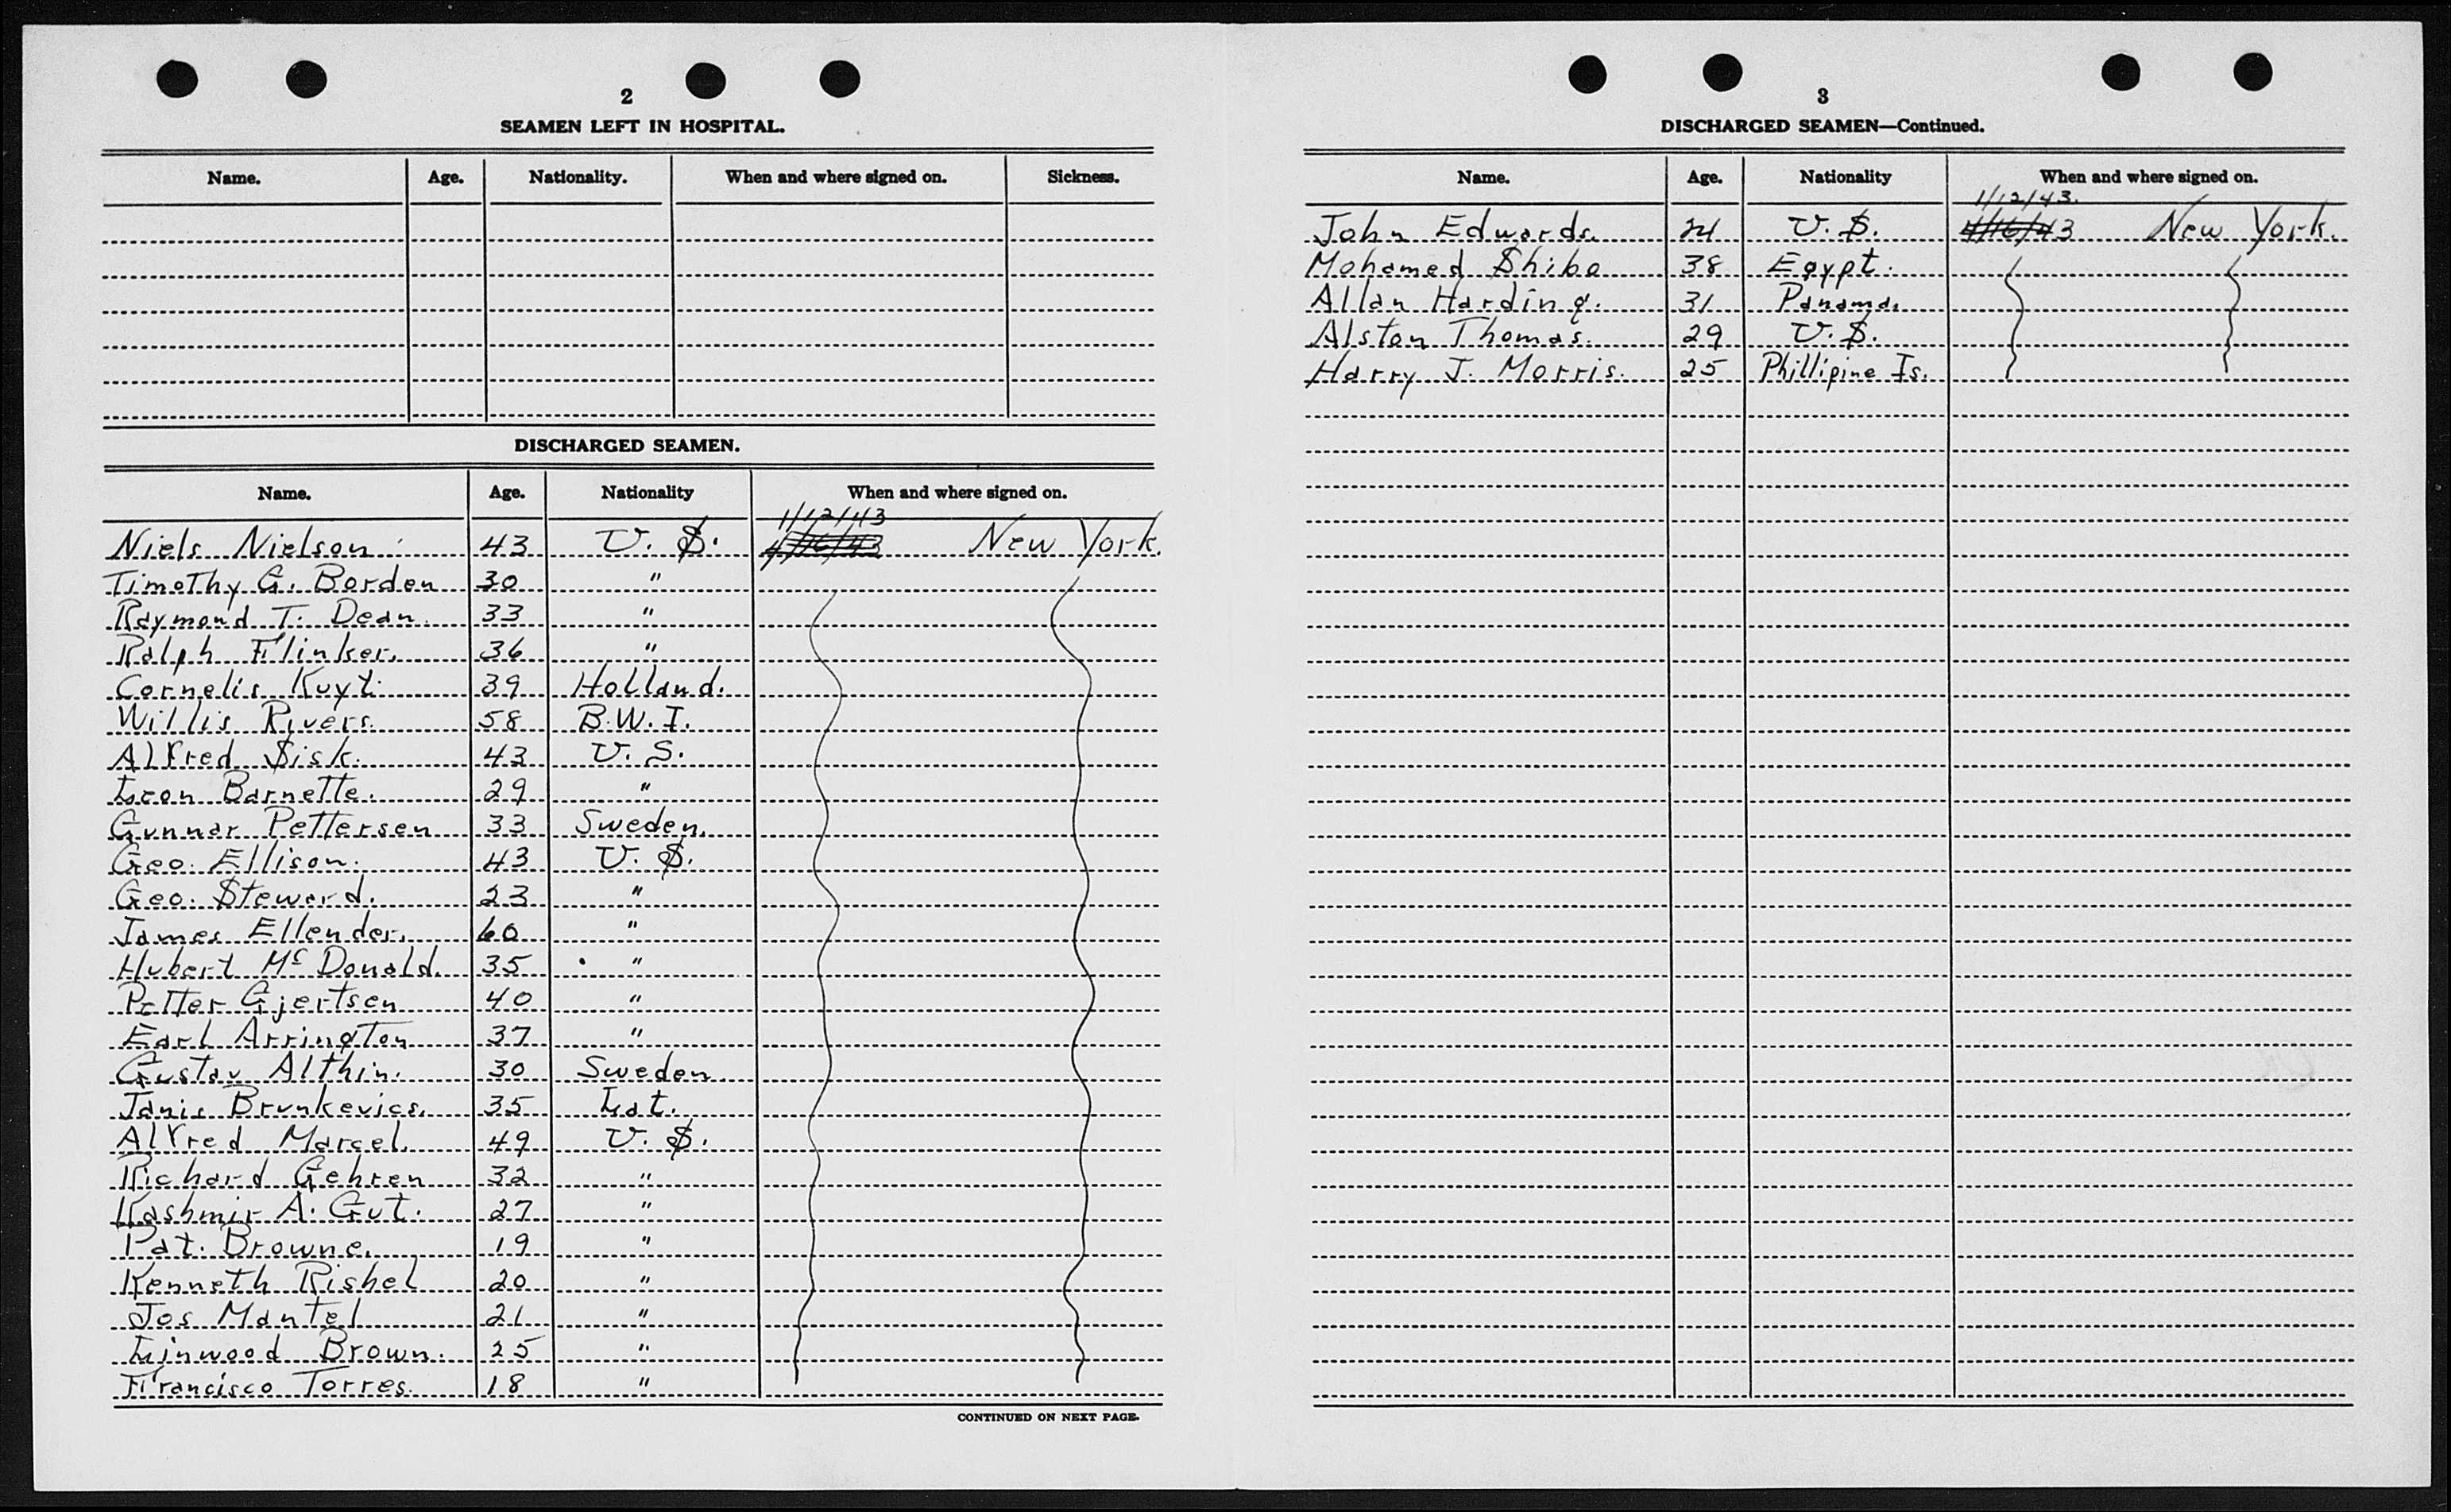 2
SEAMEN LEFT IN HOSPITAL.
Name. Age. Nationality. When and where signed on. Sickness.
DISCHARGED SEAMEN.
Name. Age. Nationality When and where signed on.
1/12/43
Niels Nielson 43 U. S. 4/16/43 New York.
Timothy G. Borden 30 "
Raymond T. Dean. 33 "
Ralph Flinker. 36 "
Cornelis Kuyt. 39 Holland.
Willis Rivers. 58 B.W.I.
Alfred Sisk. 43 U. S.
Leon Barnette. 29 "
Gunnar Pettersen 33 Sweden.
Geo. Ellison. 43 U. S.
Geo. Steward. 23 "
James Ellender. 60 "
Hubert Mc Donald. 35 "
Petter Gjertsen 40 "
Earl Arrington 37 "
Gustav Althin. 30 Sweden.
Janis Brunkevics. 35 Lat.
Alfred Marcel. 49 U. S.
Richard Gehren 32 "
Kashmir A. Gut. 27 "
Pat. Browne. 19 "
Kenneth Rishel 20 "
Jos Mantel 21 "
Linwood Brown. 25 "
Francisco Torres. 18 "
CONTINUED ON NEXT PAGE.
3
DISCHARGED SEAMEN—Continued.
Name. Age. Nationality When and where signed on.
1/12/43.
John Edwards. 24 U. S. 4/16/43 New York.
Mohamed Shibo 38 Egypt.
Allan Harding. 31 Panama.
Alston Thomas. 29 U. S.
Harry J. Morris. 25 Phillipine Is.